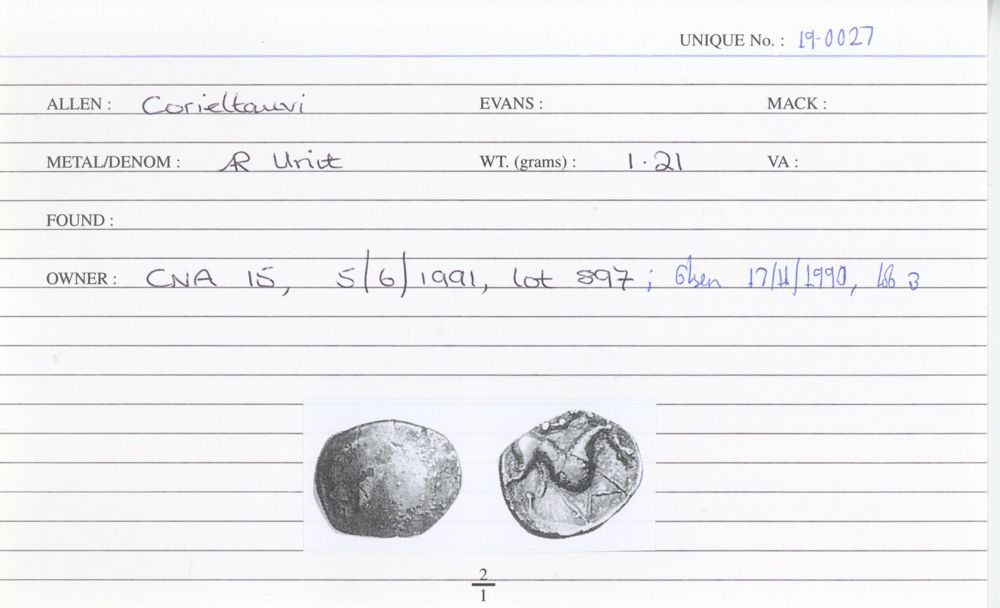 UNIQUE No. : 19-0027
ALLEN : Corieltauvi EVANS : MACK :
METAL/DENOM : AR Unit WT. (grams) : 1.21 VA :
FOUND :
OWNER : CNA 15, 5/6/1991, lot 897; Glen 17/11/1990, lot 3
2
1